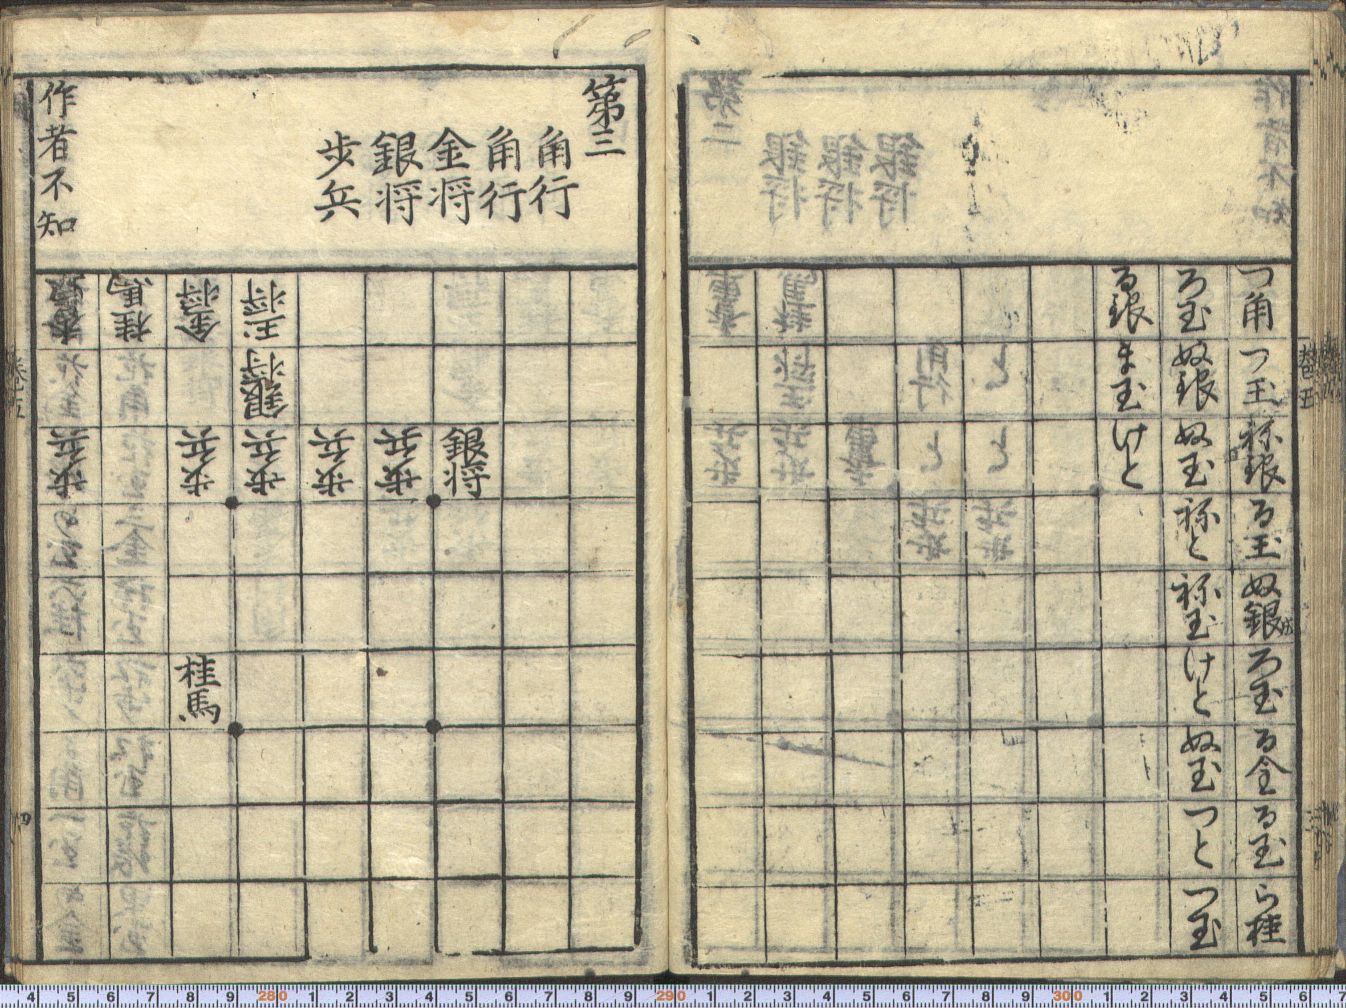 つ角 つ玉 祢銀 る玉 奴銀成 ろ玉 る金 る玉 ら桂
ろ玉 奴銀 奴玉 祢と 祢玉 けと ぬ玉 つと つ玉
る銀 ま玉 けと
第三
角行
角行
金将
銀将
歩兵
作者不知
銀将
歩兵
歩兵
玉将 銀将 歩兵
金将 歩兵 桂馬
桂馬
歩兵